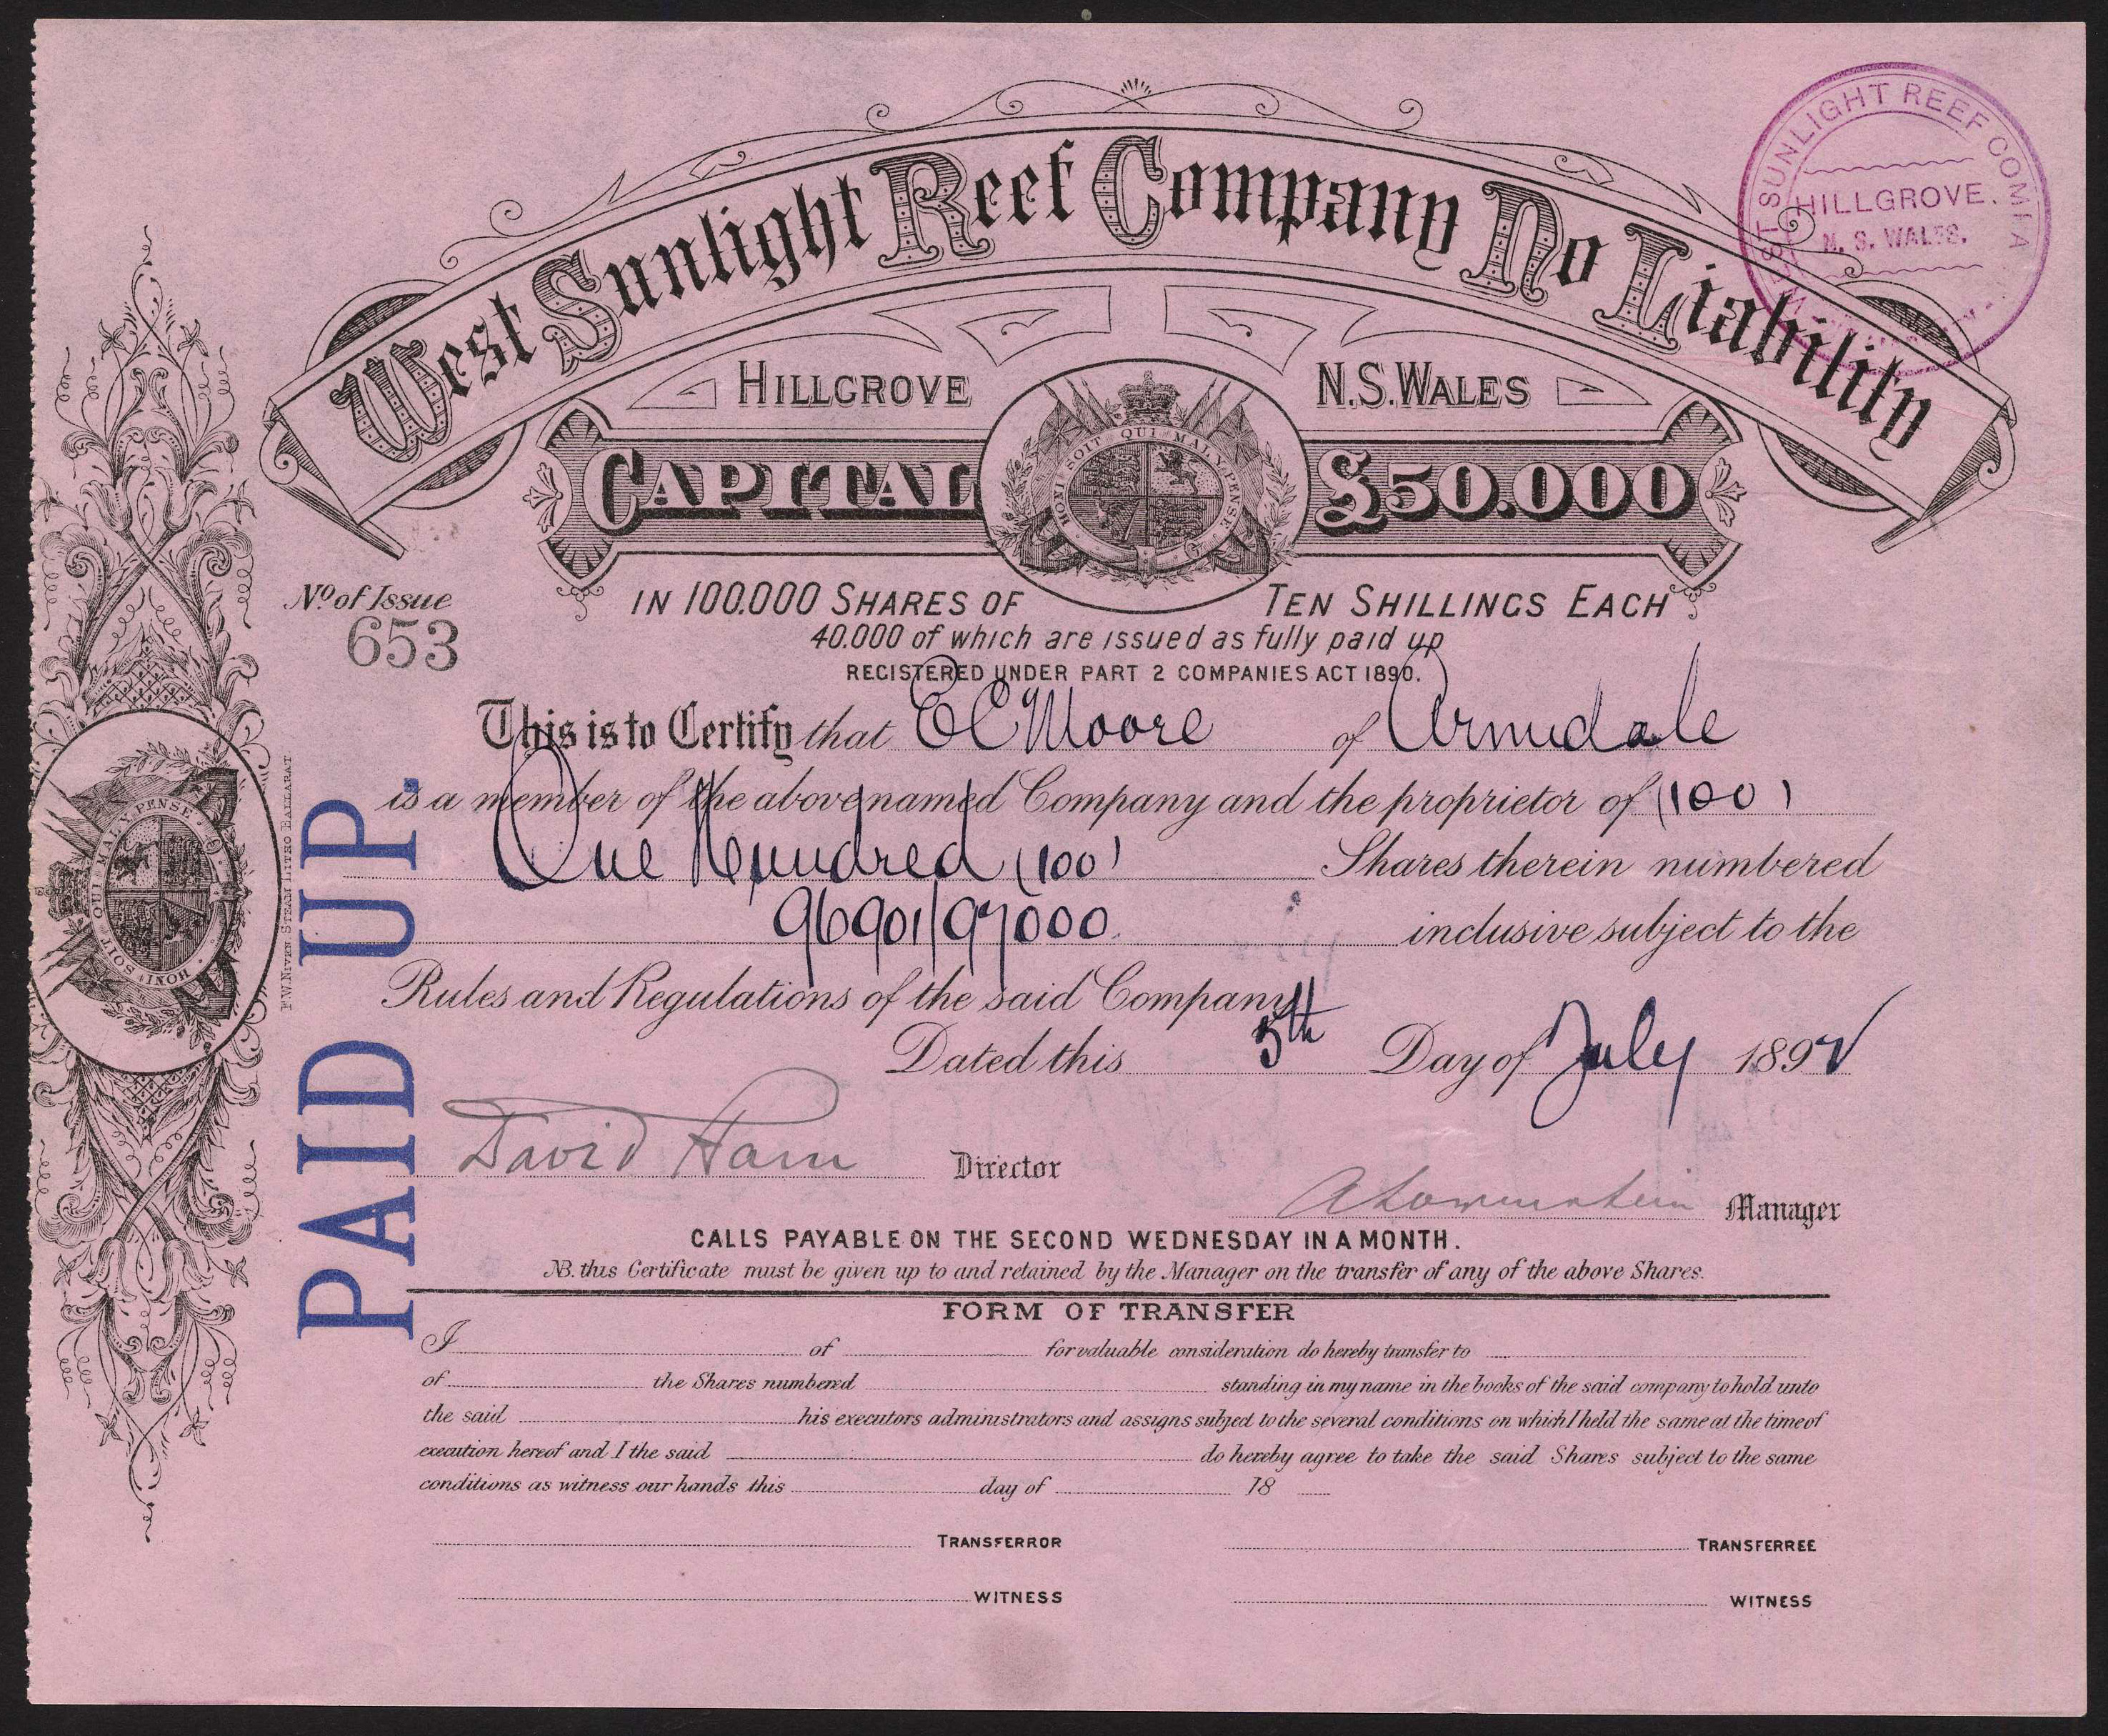 West Sunlight Reef Company No Liability
WEST SUNLIGHT REEF COMPA
HILLGROVE.
N. S. WALES.
HILLGROVE N.S.WALES
CAPITAL £50.000
HONI SOIT QUI MAL Y PENSE
No of Issue
653
IN 100.000 SHARES OF TEN SHILLINGS EACH
40.000 of which are issued as fully paid up
REGISTERED UNDER PART 2 COMPANIES ACT 1890.
This is to Certify that E C Moore of Armidale
is a member of the above named Company and the proprietor of (100)
One Hundred (100) Shares therein numbered
96901/97000. inclusive subject to the
Rules and Regulations of the said Company
Dated this 5th Day of July 1892
David Ham Director
A Lowenstein Manager
CALLS PAYABLE ON THE SECOND WEDNESDAY IN A MONTH.
NB. this Certificate must be given up to and retained by the Manager on the transfer of any of the above Shares.
FORM OF TRANSFER
I of for valuable consideration do hereby transfer to
of the Shares numbered standing in my name in the books of the said company to hold unto
the said his executors administrators and assigns subject to the several conditions on which I held the same at the time of
execution hereof and I the said do hereby agree to take the said Shares subject to the same
conditions as witness our hands this day of 18
TRANSFERROR TRANSFERREE
WITNESS WITNESS
PAID UP.
F.W. NIVEN STEAM LITHO BALLARAT
HONI SOIT QUI MAL Y PENSE